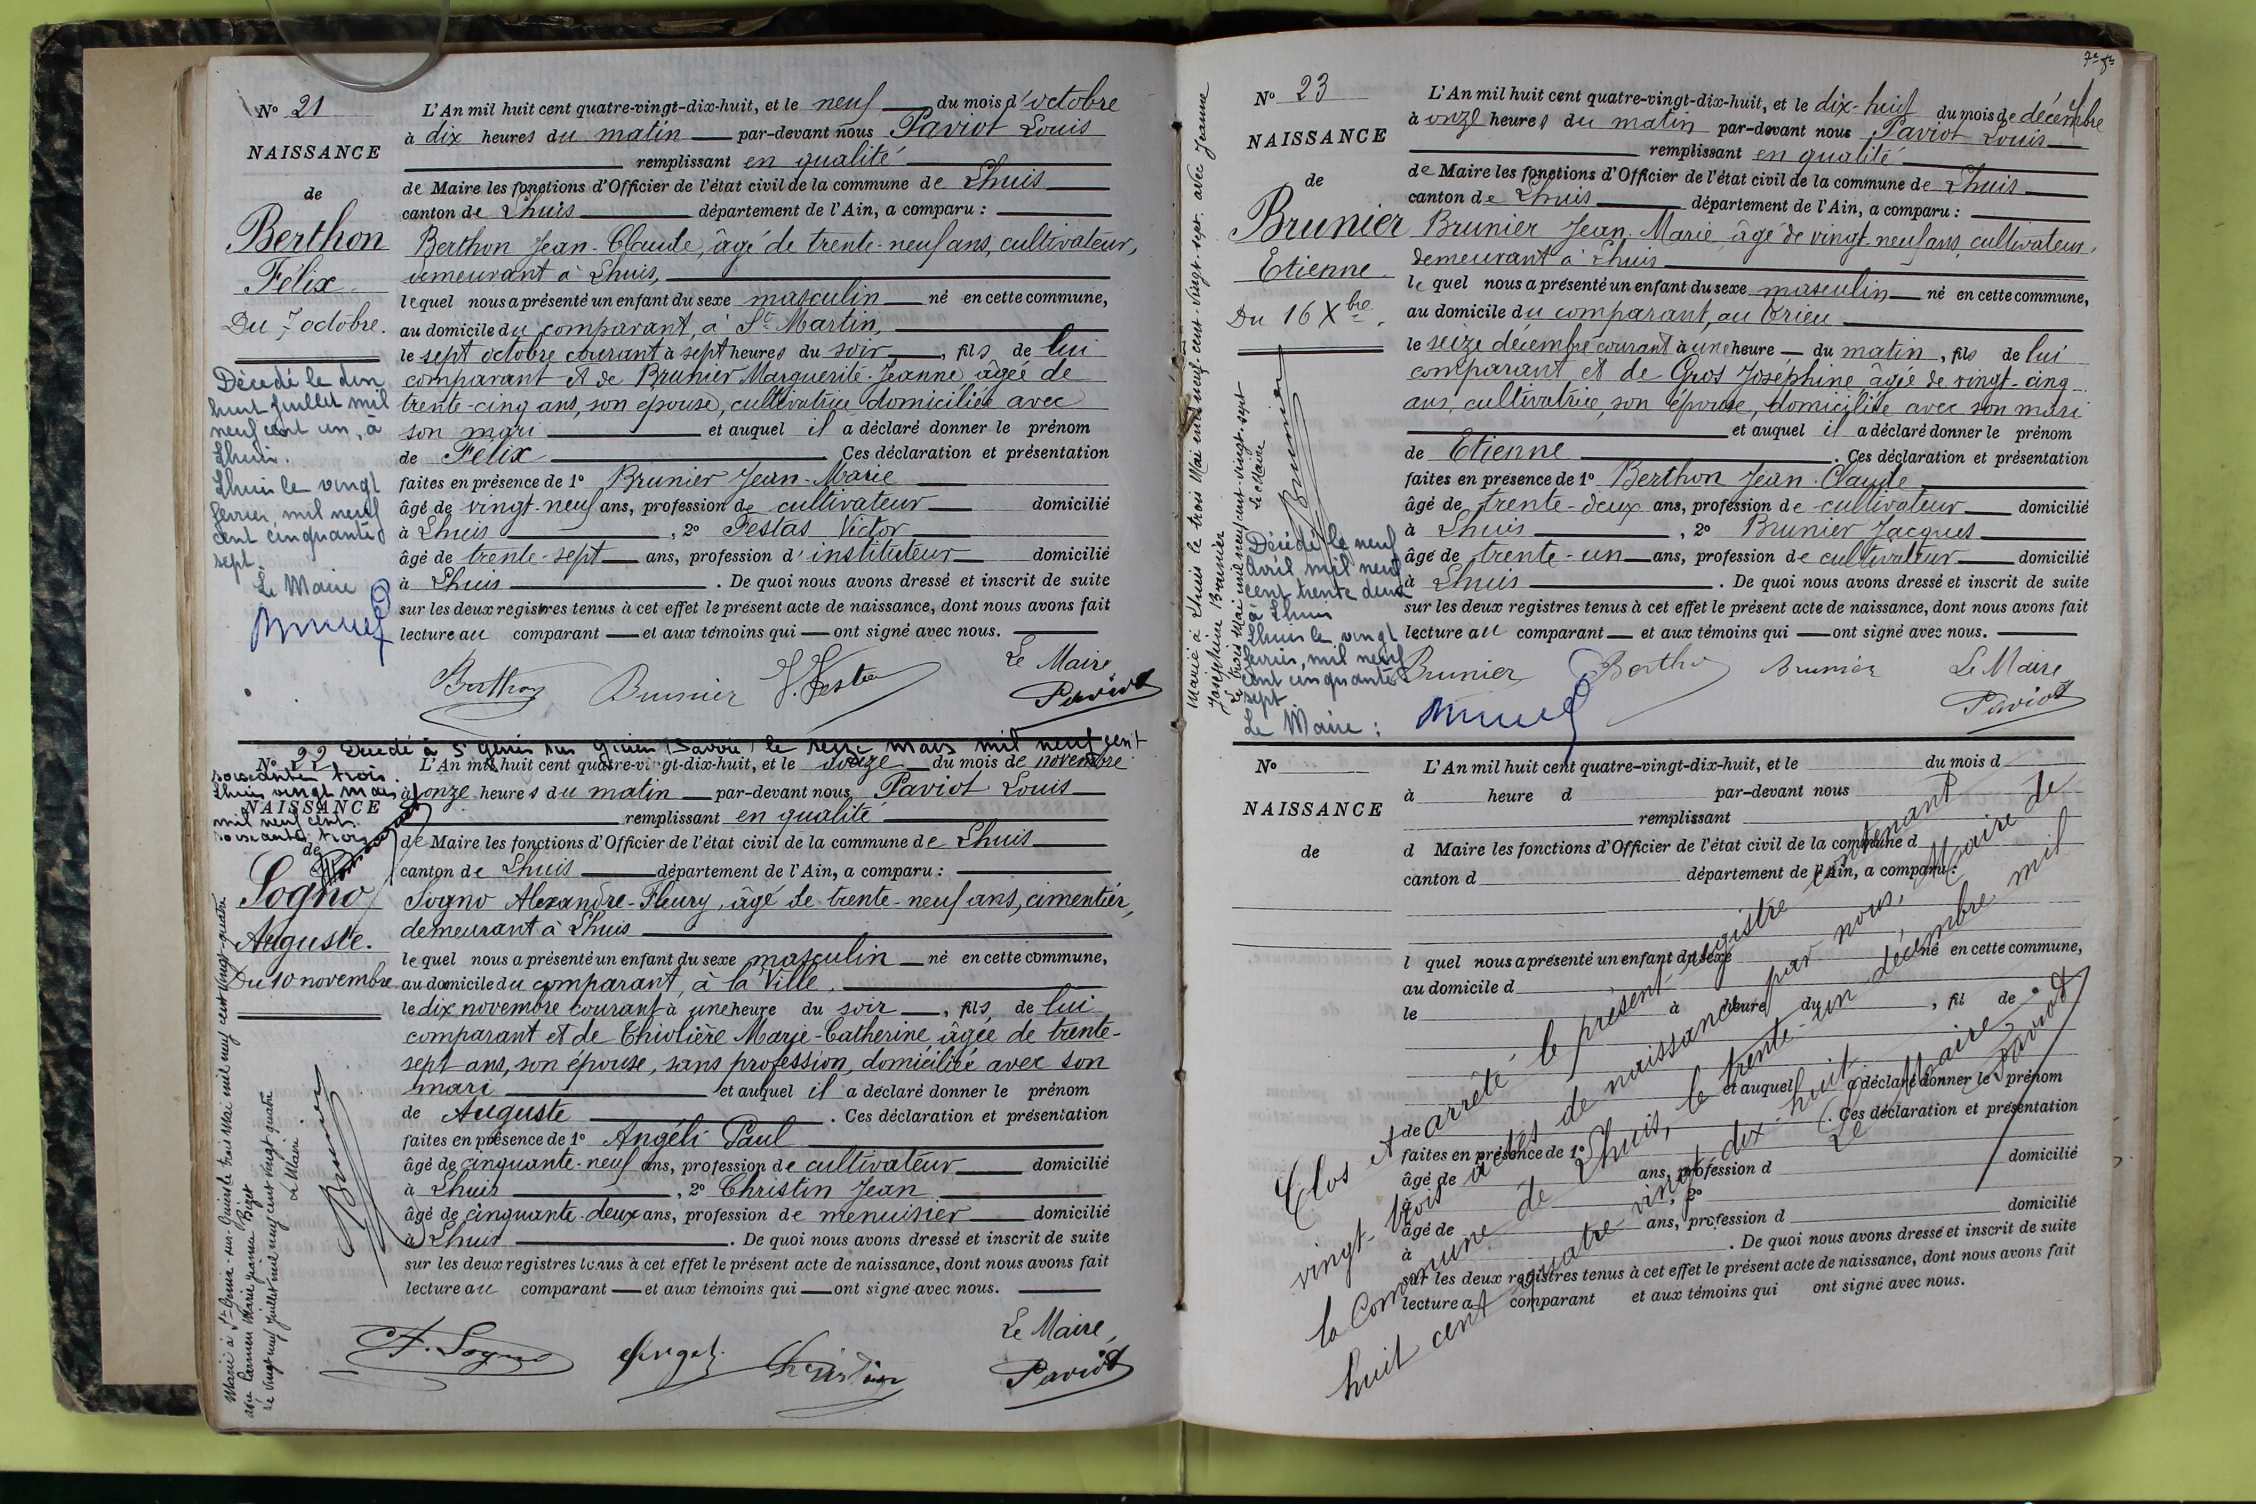 N° 21
NAISSANCE
de
Berthon
Félix
Du 7 octobre.
Décédé le dix
huit juillet mil
neuf cent un, à
Lhuis.
Lhuis le vingt
fevrier, mil neuf
cent cinquante
sept
Le Maire
L'An mil huit cent quatre-vingt-dix-huit, et le neuf du mois d'octobre
à dix heures du matin par-devant nous Paviot Louis
remplissant en qualité
de Maire les fonctions d'Officier de l'état civil de la commune de Lhuis
canton de Lhuis département de l'Ain, a comparu :
Berthon Jean-Claude, âgé de trente-neuf ans, cultivateur,
demeurant à Lhuis,
lequel nous a présenté un enfant du sexe masculin né en cette commune,
au domicile du comparant, à St Martin,
le sept octobre courant à sept heures du soir, fils de lui
comparant et de Brunier Marguerite-Jeanne, âgée de
trente-cinq ans, son épouse, cultivatrice domiciliée avec
son mari et auquel il a déclaré donner le prénom
de Félix Ces déclaration et présentation
faites en présence de 1° Brunier Jean-Marie
âgé de vingt-neuf ans, profession de cultivateur domicilié
à Lhuis, 2° Pestas Victor
âgé de trente-sept ans, profession d'instituteur domicilié
à Lhuis. De quoi nous avons dressé et inscrit de suite
sur les deux registres tenus à cet effet le présent acte de naissance, dont nous avons fait
lecture au comparant et aux témoins qui ont signé avec nous.
Berthon Brunier Le Maire
Paviot
N° 22 Décédé à St Genis sur Guiers (Savoie) le seize mars mil neuf cent
soixante trois.
Lhuis vingt mars
mil neuf cent
soixante trois
NAISSANCE
de
Sogno
Auguste.
Du 10 novembre
Marié à St Genix-sur-Guiers le trois Mai mil neuf cent vingt-quatre
avec Carmen Marie Jeanne Bizet
Le vingt neuf juillet mil neuf cent vingt quatre
Le Maire
Brunier
L'An mil huit cent quatre-vingt-dix-huit, et le douze du mois de novembre
à onze heures du matin par-devant nous Paviot Louis
remplissant en qualité
de Maire les fonctions d'Officier de l'état civil de la commune de Lhuis
canton de Lhuis département de l'Ain, a comparu :
Sogno Alexandre-Fleury, âgé de trente-neuf ans, cimentier,
demeurant à Lhuis
lequel nous a présenté un enfant du sexe masculin né en cette commune,
au domicile du comparant, à la Ville,
le dix novembre courant à une heure du soir, fils de lui
comparant et de Thiolière Marie-Catherine, âgée de trente-
sept ans, son épouse, sans profession, domiciliée avec son
mari et auquel il a déclaré donner le prénom
de Auguste. Ces déclaration et présentation
faites en présence de 1° Angéli Paul
âgé de cinquante-neuf ans, profession de cultivateur domicilié
à Lhuis, 2° Christin Jean
âgé de cinquante-deux ans, profession de menuisier domicilié
à Lhuis. De quoi nous avons dressé et inscrit de suite
sur les deux registres tenus à cet effet le présent acte de naissance, dont nous avons fait
lecture au comparant et aux témoins qui ont signé avec nous.
Le Maire,
A. Sogno Angeli Christin Paviot
N° 23
NAISSANCE
de
Brunier
Etienne
Du 16 Xbre.
Marié à Lhuis le trois Mai mil neuf cent-vingt-sept avec Jeanne
Joséphine Brunier
Le trois Mai mil neuf cent-vingt-sept
Le Maire
Brunier
Décédé le neuf
avril mil neuf
cent trente deux
à Lhuis
Lhuis le vingt
fevrier, mil neuf
cent cinquante
sept
Le Maire :
L'An mil huit cent quatre-vingt-dix-huit, et le dix-huit du mois de décembre
à onze heures du matin par-devant nous Paviot Louis
remplissant en qualité
de Maire les fonctions d'Officier de l'état civil de la commune de Lhuis
canton de Lhuis département de l'Ain, a comparu :
Brunier Jean-Marie, âgé de vingt-neuf ans, cultivateur,
demeurant à Lhuis
lequel nous a présenté un enfant du sexe masculin né en cette commune,
au domicile du comparant, au Crieu
le seize décembre courant à une heure du matin, fils de lui
comparant et de Gros Joséphine, âgée de vingt-cinq
ans, cultivatrice, son épouse, domiciliée avec son mari
et auquel il a déclaré donner le prénom
de Etienne. Ces déclaration et présentation
faites en présence de 1° Berthon Jean-Claude
âgé de trente-deux ans, profession de cultivateur domicilié
à Lhuis, 2° Brunier Jacques
âgé de trente-un ans, profession de cultivateur domicilié
à Lhuis. De quoi nous avons dressé et inscrit de suite
sur les deux registres tenus à cet effet le présent acte de naissance, dont nous avons fait
lecture au comparant et aux témoins qui ont signé avec nous.
Brunier Berthon Brunier Le Maire
Paviot
N°
NAISSANCE
de
L'An mil huit cent quatre-vingt-dix-huit, et le du mois d
à heure d par-devant nous
remplissant
d Maire les fonctions d'Officier de l'état civil de la commune d
canton d département de l'Ain, a comparu :
l quel nous a présenté un enfant du sexe né en cette commune,
au domicile d
le à heure du, fil de
et auquel a déclaré donner le prénom
de. Ces déclaration et présentation
faites en présence de 1°
âgé de ans, profession d domicilié
à, 2°
âgé de ans, profession d domicilié
à. De quoi nous avons dressé et inscrit de suite
sur les deux registres tenus à cet effet le présent acte de naissance, dont nous avons fait
lecture a comparant et aux témoins qui ont signé avec nous.
Clos et arrêté le présent registre contenant
vingt-trois actes de naissance par nous, Maire de
la Commune de Lhuis, le trente-un décembre mil
huit cent quatre-vingt-dix-huit.
Le Maire
Paviot